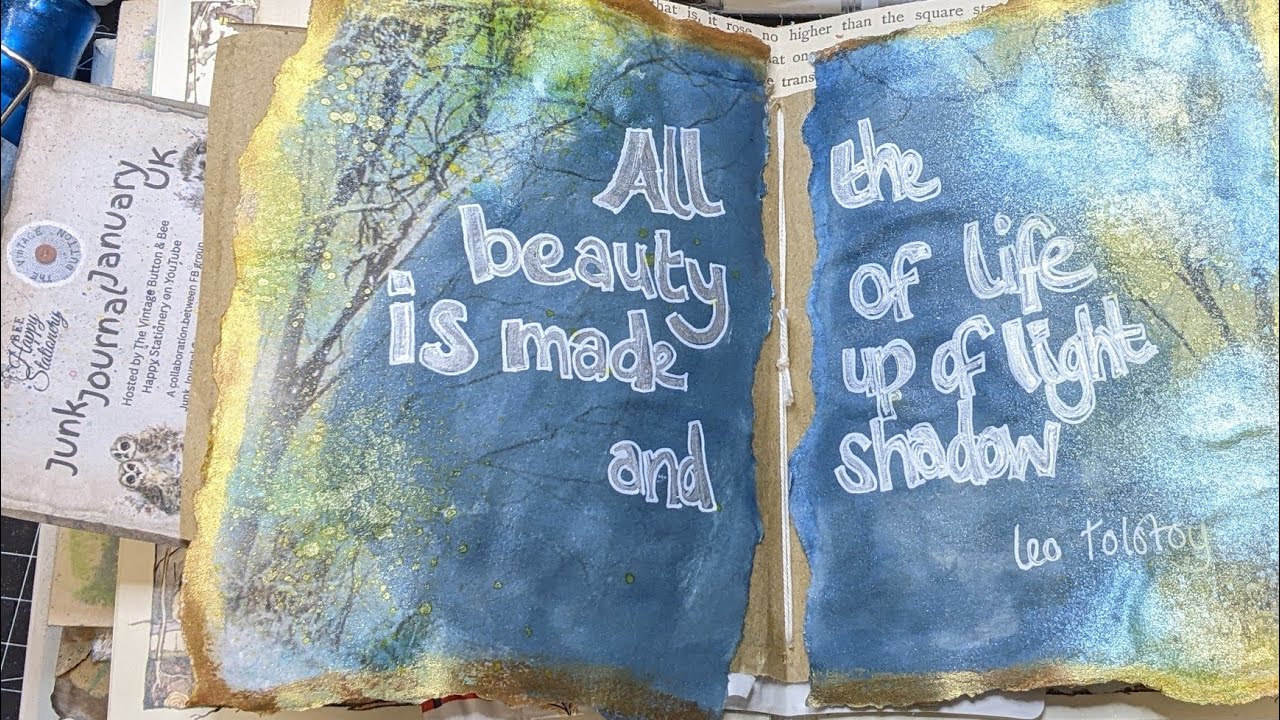 is, it rose no higher than the square
All the
beauty of life
is made up of light
and shadow
leo Tolstoy
Junk
Journal January
UK
Hosted by The Vintage Button & Bee
Happy Stationery on YouTube
A collaboration between FB group
Junk Journal
BEE
Happy
Stationery